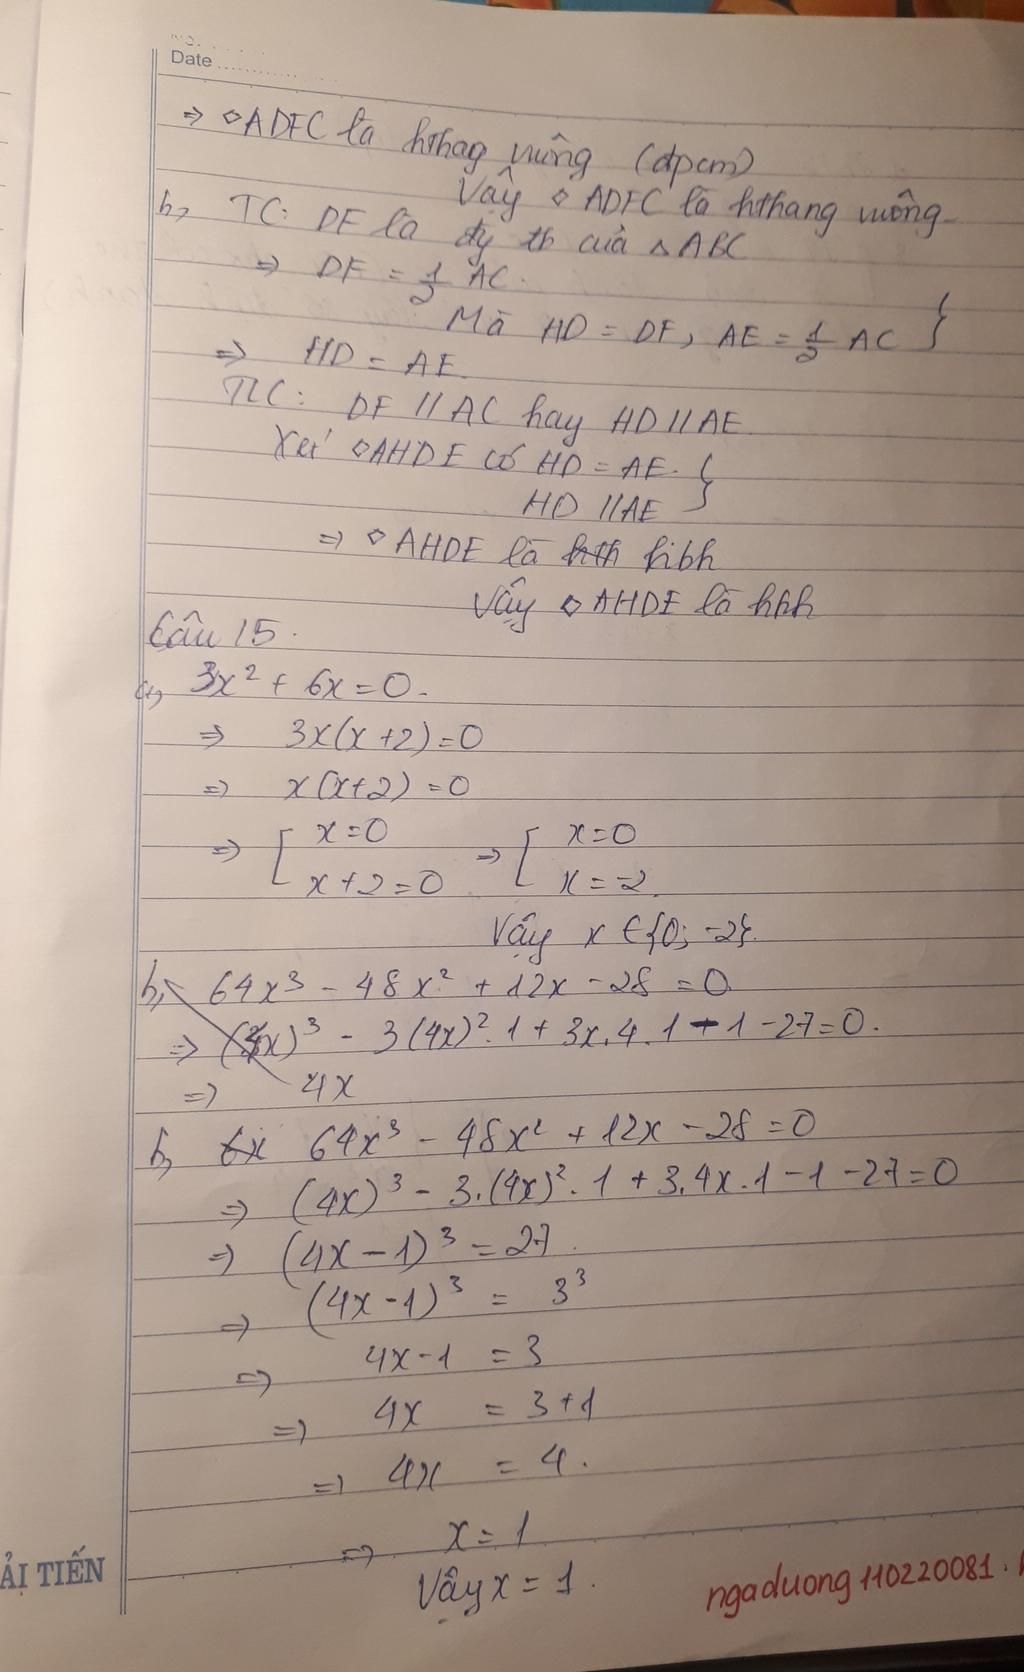 No.
Date
⇒ ◇ADFC là hthag vuông (đpcm)
Vậy ◇ADFC là hthang vuông
b, TC: DF là đg tb của △ABC
⇒ DF = 1/2 AC.
Mà HD = DF, AE = 1/2 AC }
⇒ HD = AE.
TLC: DF // AC hay HD // AE
Xét ◇AHDE có HD = AE. }
HD // AE
⇒ ◇AHDE là hbh
Vậy ◇AHDE là hbh
Câu 15.
a, 3x² + 6x = 0.
⇒ 3x(x+2) = 0
⇒ x(x+2) = 0
⇒ [ x=0 ⇒ [ x=0
x+2=0 x=-2.
Vậy x ∈ {0; -2}.
b, 64x³ - 48x² + 12x - 28 = 0
⇒ (4x)³ - 3(4x)².1 + 3x.4.1 - 1 - 27 = 0.
⇒ 4x
b, 6x 64x³ - 48x² + 12x - 28 = 0
⇒ (4x)³ - 3.(4x)².1 + 3.4x.1 - 1 - 27 = 0
⇒ (4x - 1)³ = 27.
⇒ (4x-1)³ = 3³
⇒ 4x-1 = 3
⇒ 4x = 3+1
⇒ 4x = 4.
⇒ x = 1
Vậy x = 1.
ẢI TIẾN
ngaduong110220081.